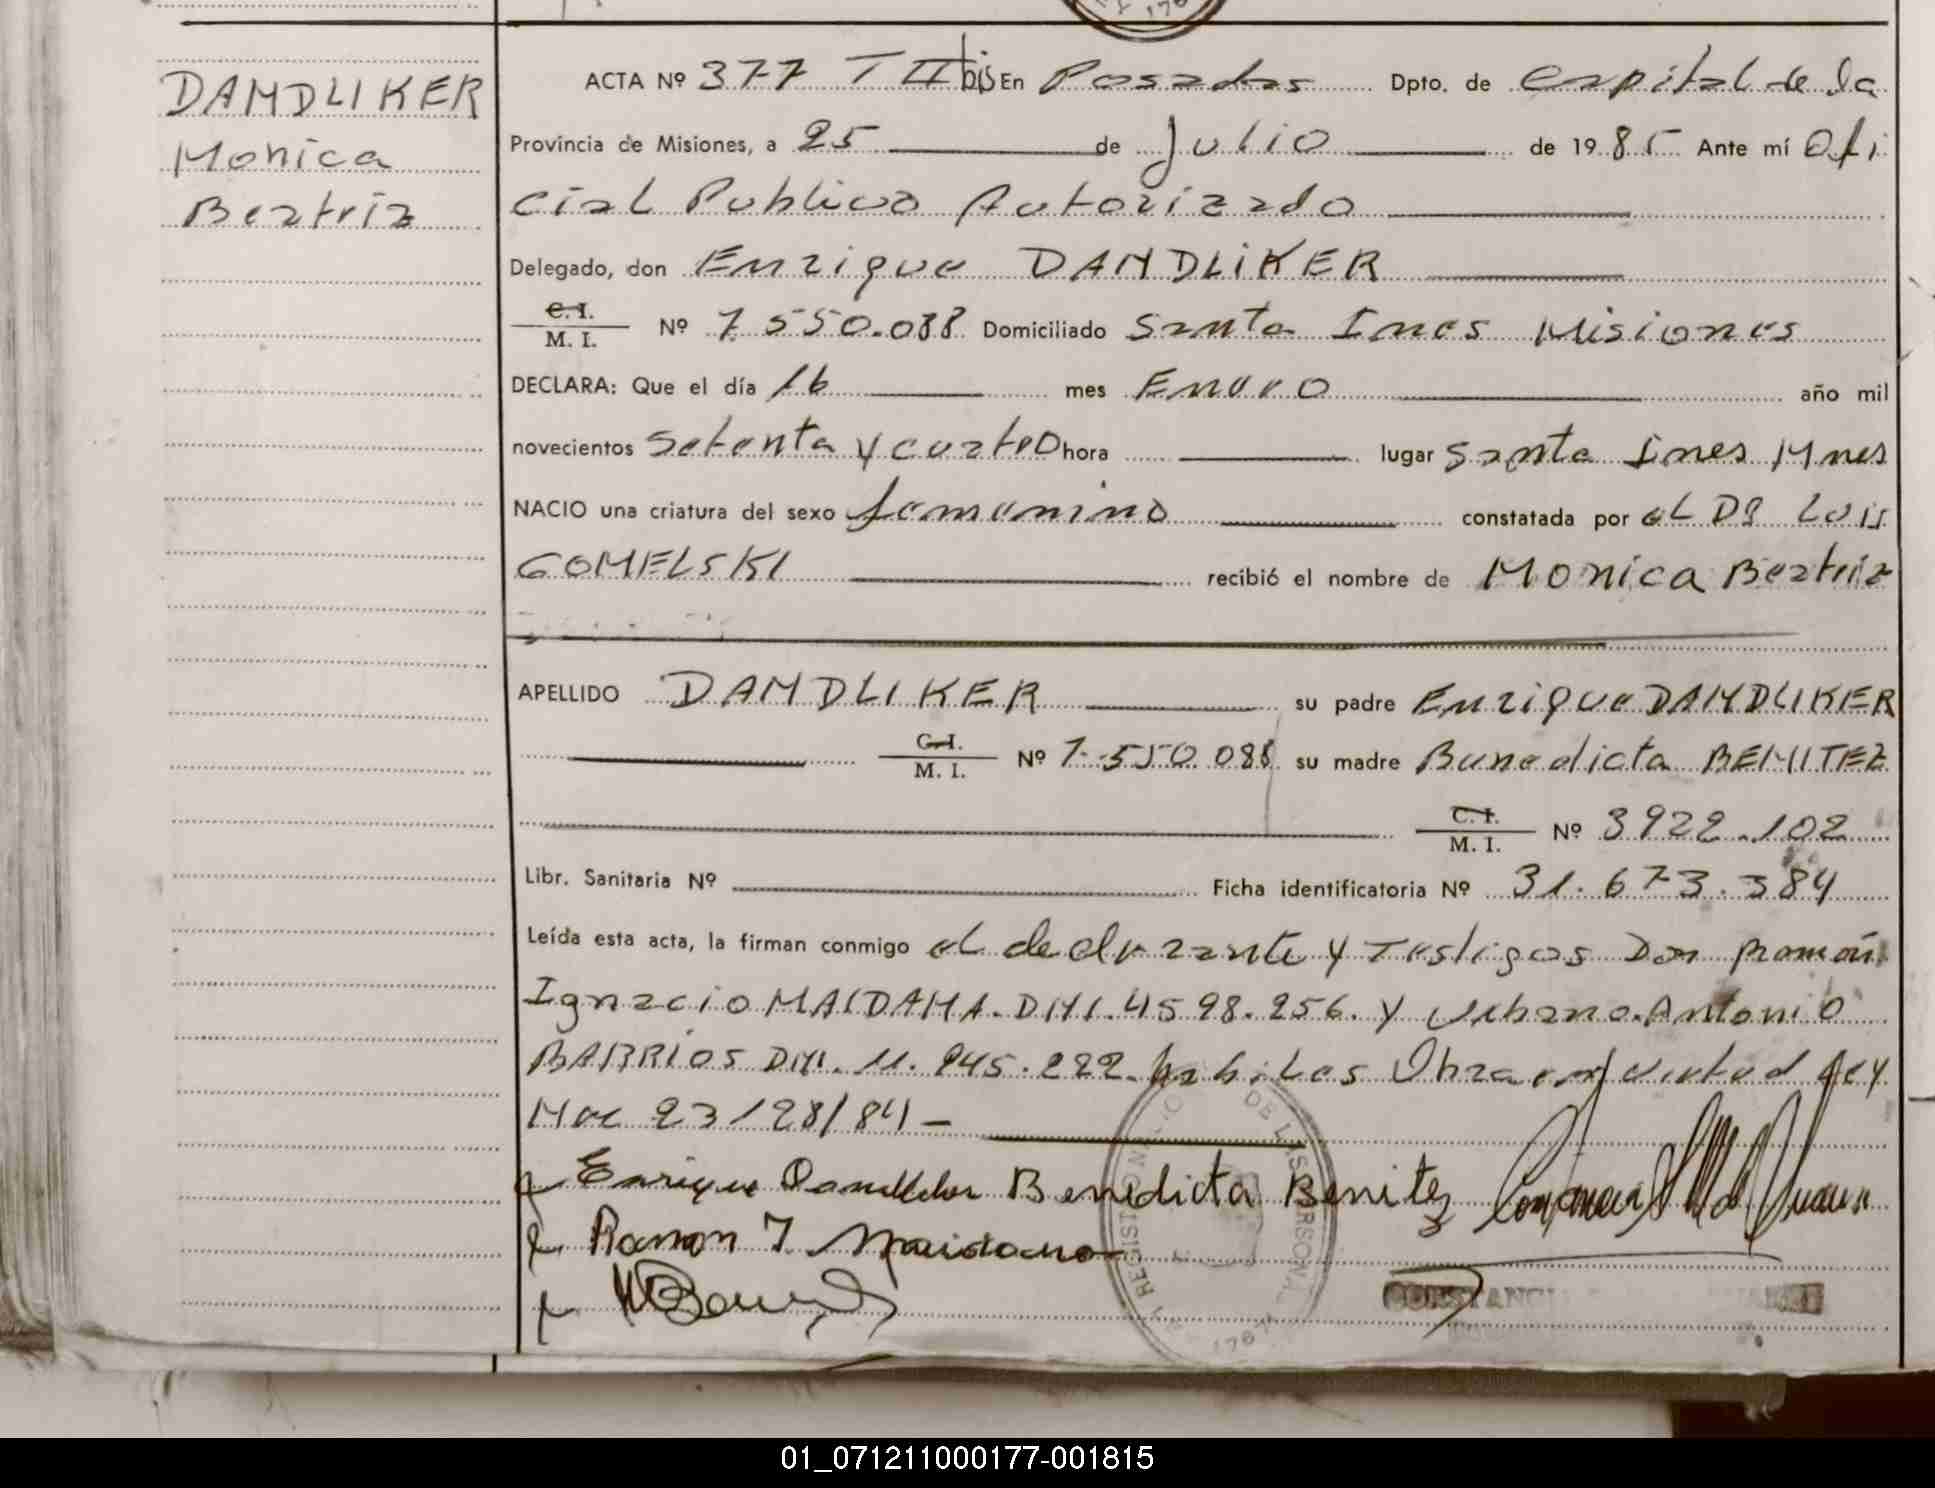 DANDLIKER
Monica
Beatriz
ACTA Nº 377 T II bis En Posadas Dpto. de Capital de la
Provincia de Misiones, a 25 de Julio de 1985 Ante mí Ofi
cial Publico Autorizado
Delegado, don Enrique DANDLIKER
C. I.
M. I. Nº 7.550.088 Domiciliado Santa Ines Misiones
DECLARA: Que el día 16 mes Enero año mil
novecientos setenta y cuatro hora lugar Santa Ines Mnes
NACIO una criatura del sexo femenino constatada por el DR Luis
GOMELSKI recibió el nombre de Monica Beatriz
APELLIDO DANDLIKER su padre Enrique DANDLIKER
C. I.
M. I. Nº 7.550.088 su madre Benedicta BENITEZ
C. I.
M. I. Nº 3922.102
Libr. Sanitaria Nº Ficha identificatoria Nº 31.673.384
Leída esta acta, la firman conmigo el declarante y Testigos Don Ramón
Ignacio MAIDANA. DNI. 4598.256. y Urbano Antonio
BARRIOS DNI. 11.945.222. habiles Obra en virtud Ley
Nac 23128/84 -
Enrique Dandliker Benedicta Benitez
Ramon I Maidana
REGISTRO DE LAS PERSONAS
CONSTANCI
01_071211000177-001815